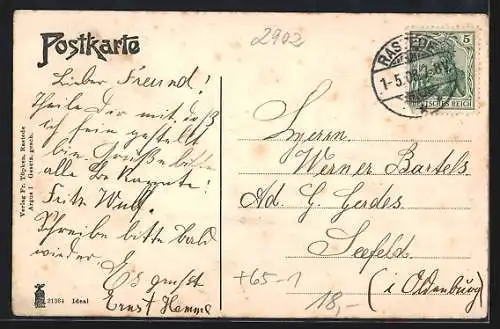 Postkarte
2902
RASTEDE
1-5.08.
5
DEUTSCHES REICH
Lieber Freund!
Theile Dir mit, daß
ich fein gestellt
bin. Grüße bitte
alle
Fritz Wulf.
Schreibe bitte bald
wieder.
Es grüsst
Ernst
Herrn
Werner Bartels
Ad. G. Gerdes
Seefeld
(i Oldenburg)
+65-1
18,-
Verlag Fr. Töpken, Rastede
Argus I Gesetz. gesch.
21364 Ideal